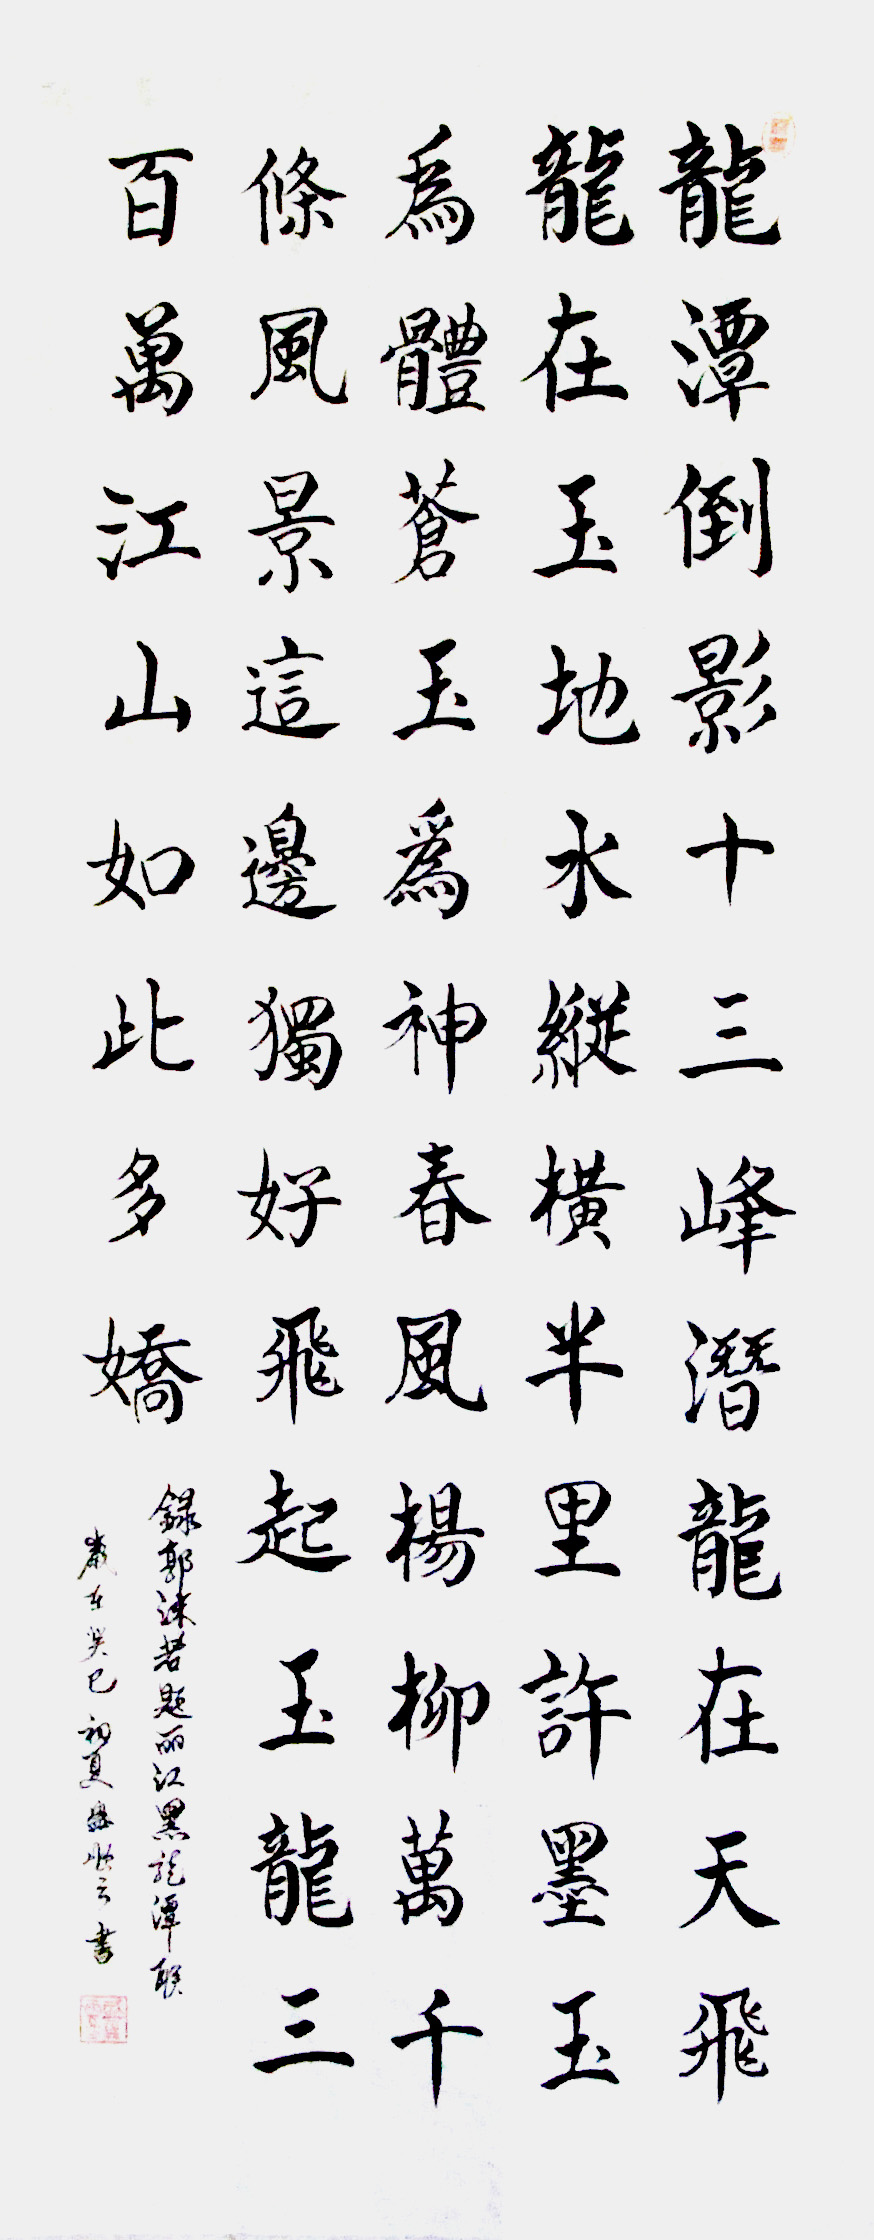 龍潭倒影十三峰潛龍在天飛
龍在玉地水縱橫半里許墨玉
為體蒼玉爲神春風楊柳萬千
條風景這邊獨好飛起玉龍三
百萬江山如此多嬌
録郭沫若题丽江黑龍潭联
歲在癸巳初夏云書